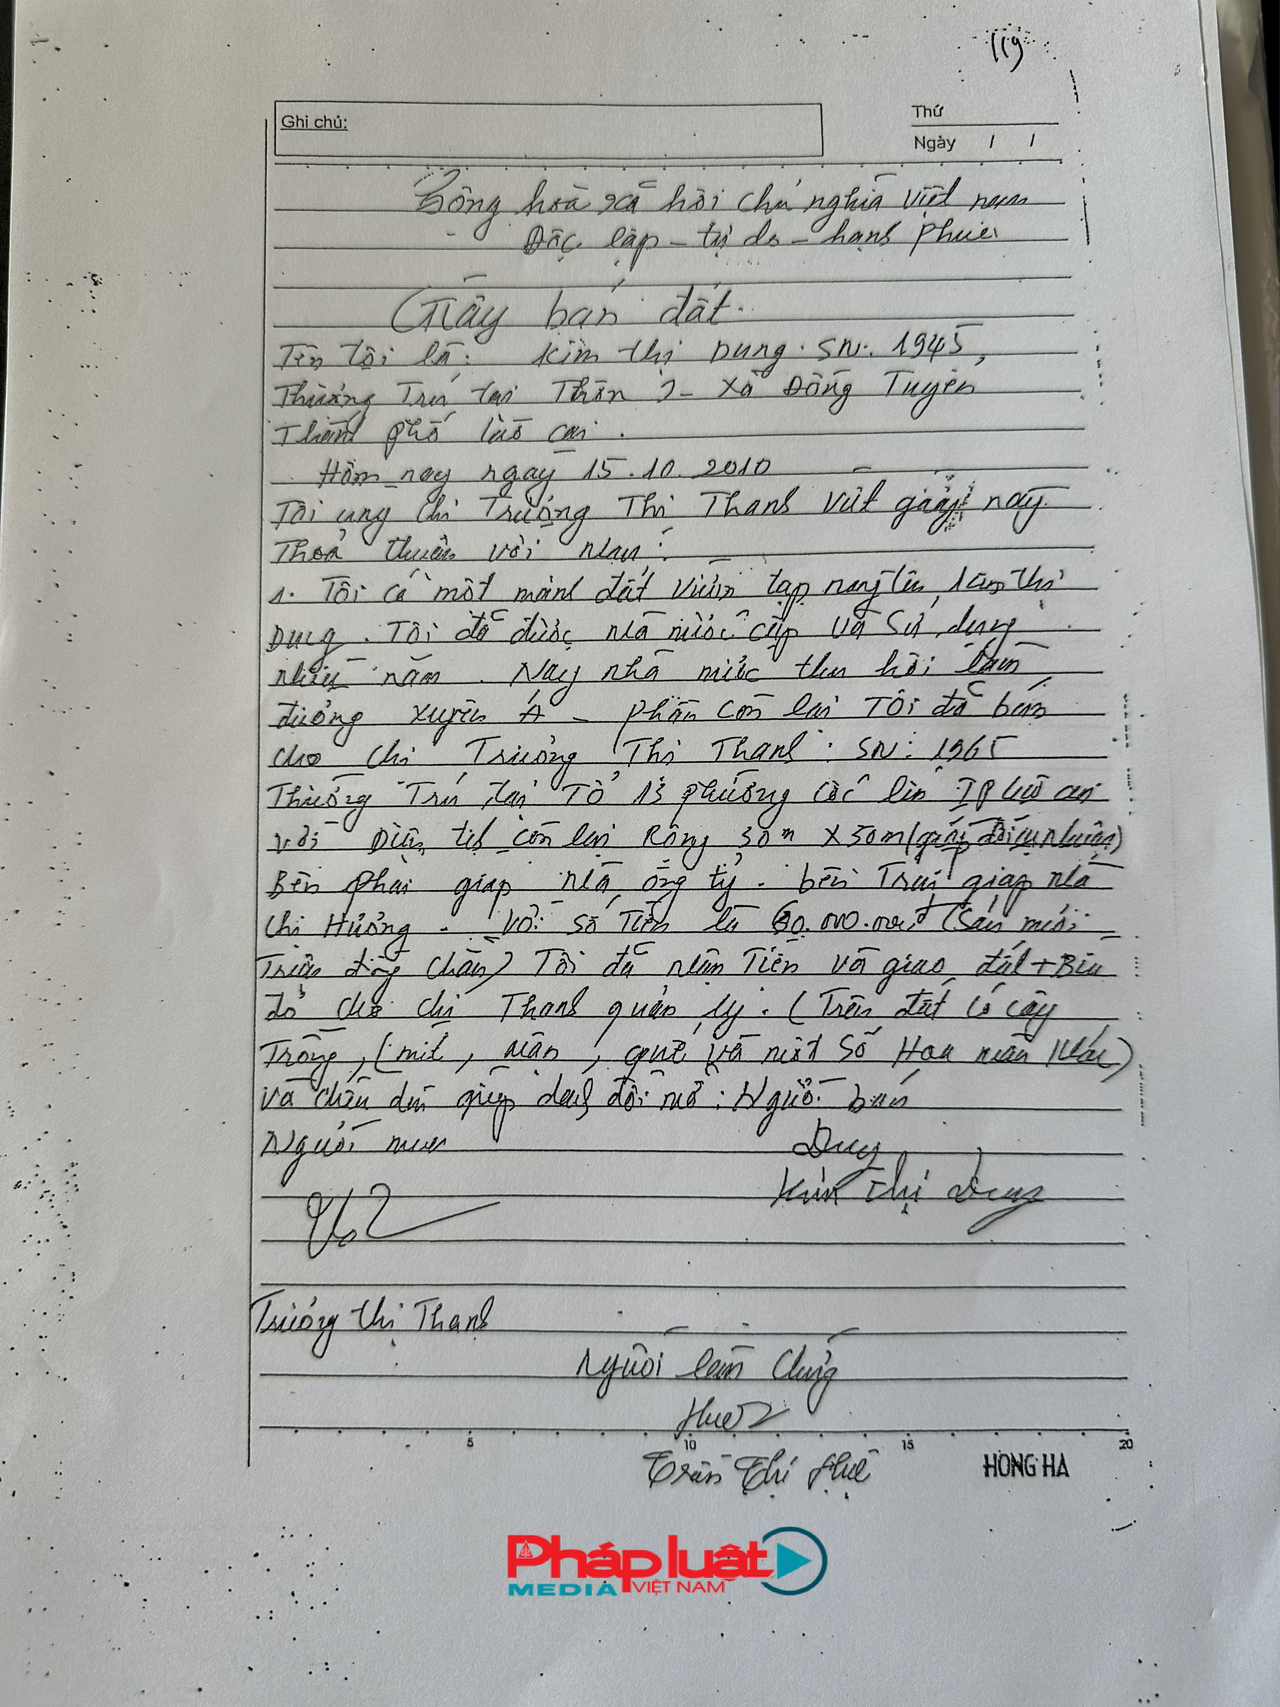 119
Ghi chú:
Thứ
Ngày / /
Cộng hoà xã hội chủ nghĩa Việt nam
Độc lập - tự do - hạnh phúc
Giấy bán đất.
Tên tôi là: Kim thị Dung. SN: 1945,
Thường Trú tại Thôn 2 - Xã Đồng Tuyển
Thành phố lào cai.
Hôm nay ngày 15.10.2010
Tôi cùng chị Trương Thị Thanh viết giấy này
Thoả thuận với nhau:
1. Tôi có một mảnh đất vườn tạp mang tên Kim thị
Dung. Tôi đã được nhà nước cấp và sử dụng
nhiều năm. Nay nhà nước thu hồi làm
đường xuyên Á - phần còn lại Tôi đã bán
cho chị Trương Thị Thanh: SN: 1965
Thường Trú tại Tổ 13 phường cốc lếu TP lào cai
với Diện tích còn lại Rộng 30m X 50m
Bên phải giáp nhà ông tỷ. bên Trái giáp nhà
chị Hưởng. Với số Tiền là 60.000.000đ (Sáu mươi
Triệu đồng chẵn) Tôi đã nhận Tiền và giao đất + Bìa
đỏ cho chị Thanh quản lý. (Trên đất có cây
Trồng, (mít, nhãn, quế và một số Hoa màu khác)
và chịu
Người bán
Người mua
Dung
Kim Thị Dung
Trương thị Thanh
Người làm chứng
Huệ
Trần Thị Huệ
5 10 15 20
HỒNG HÀ
Pháp luật
MEDIA VIỆT NAM